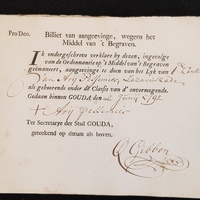 Pro Deo. Billiet van aangeevinge, wegens het
Middel van 't Begraven.
IK ondergeschreve verklare by deezen, ingevolge
van de Ordonnantie op 't Middel van 't Begraven
geëmaneert, aangeevinge te doen van het Lyk van
Van Arij
als gehoorende onder de Classis van d' onvermogende.
Gedaan binnen GOUDA den 2 Junij 1791
Arij
Ter Secretarye der Stad GOUDA,
geteekend op datum als boven.